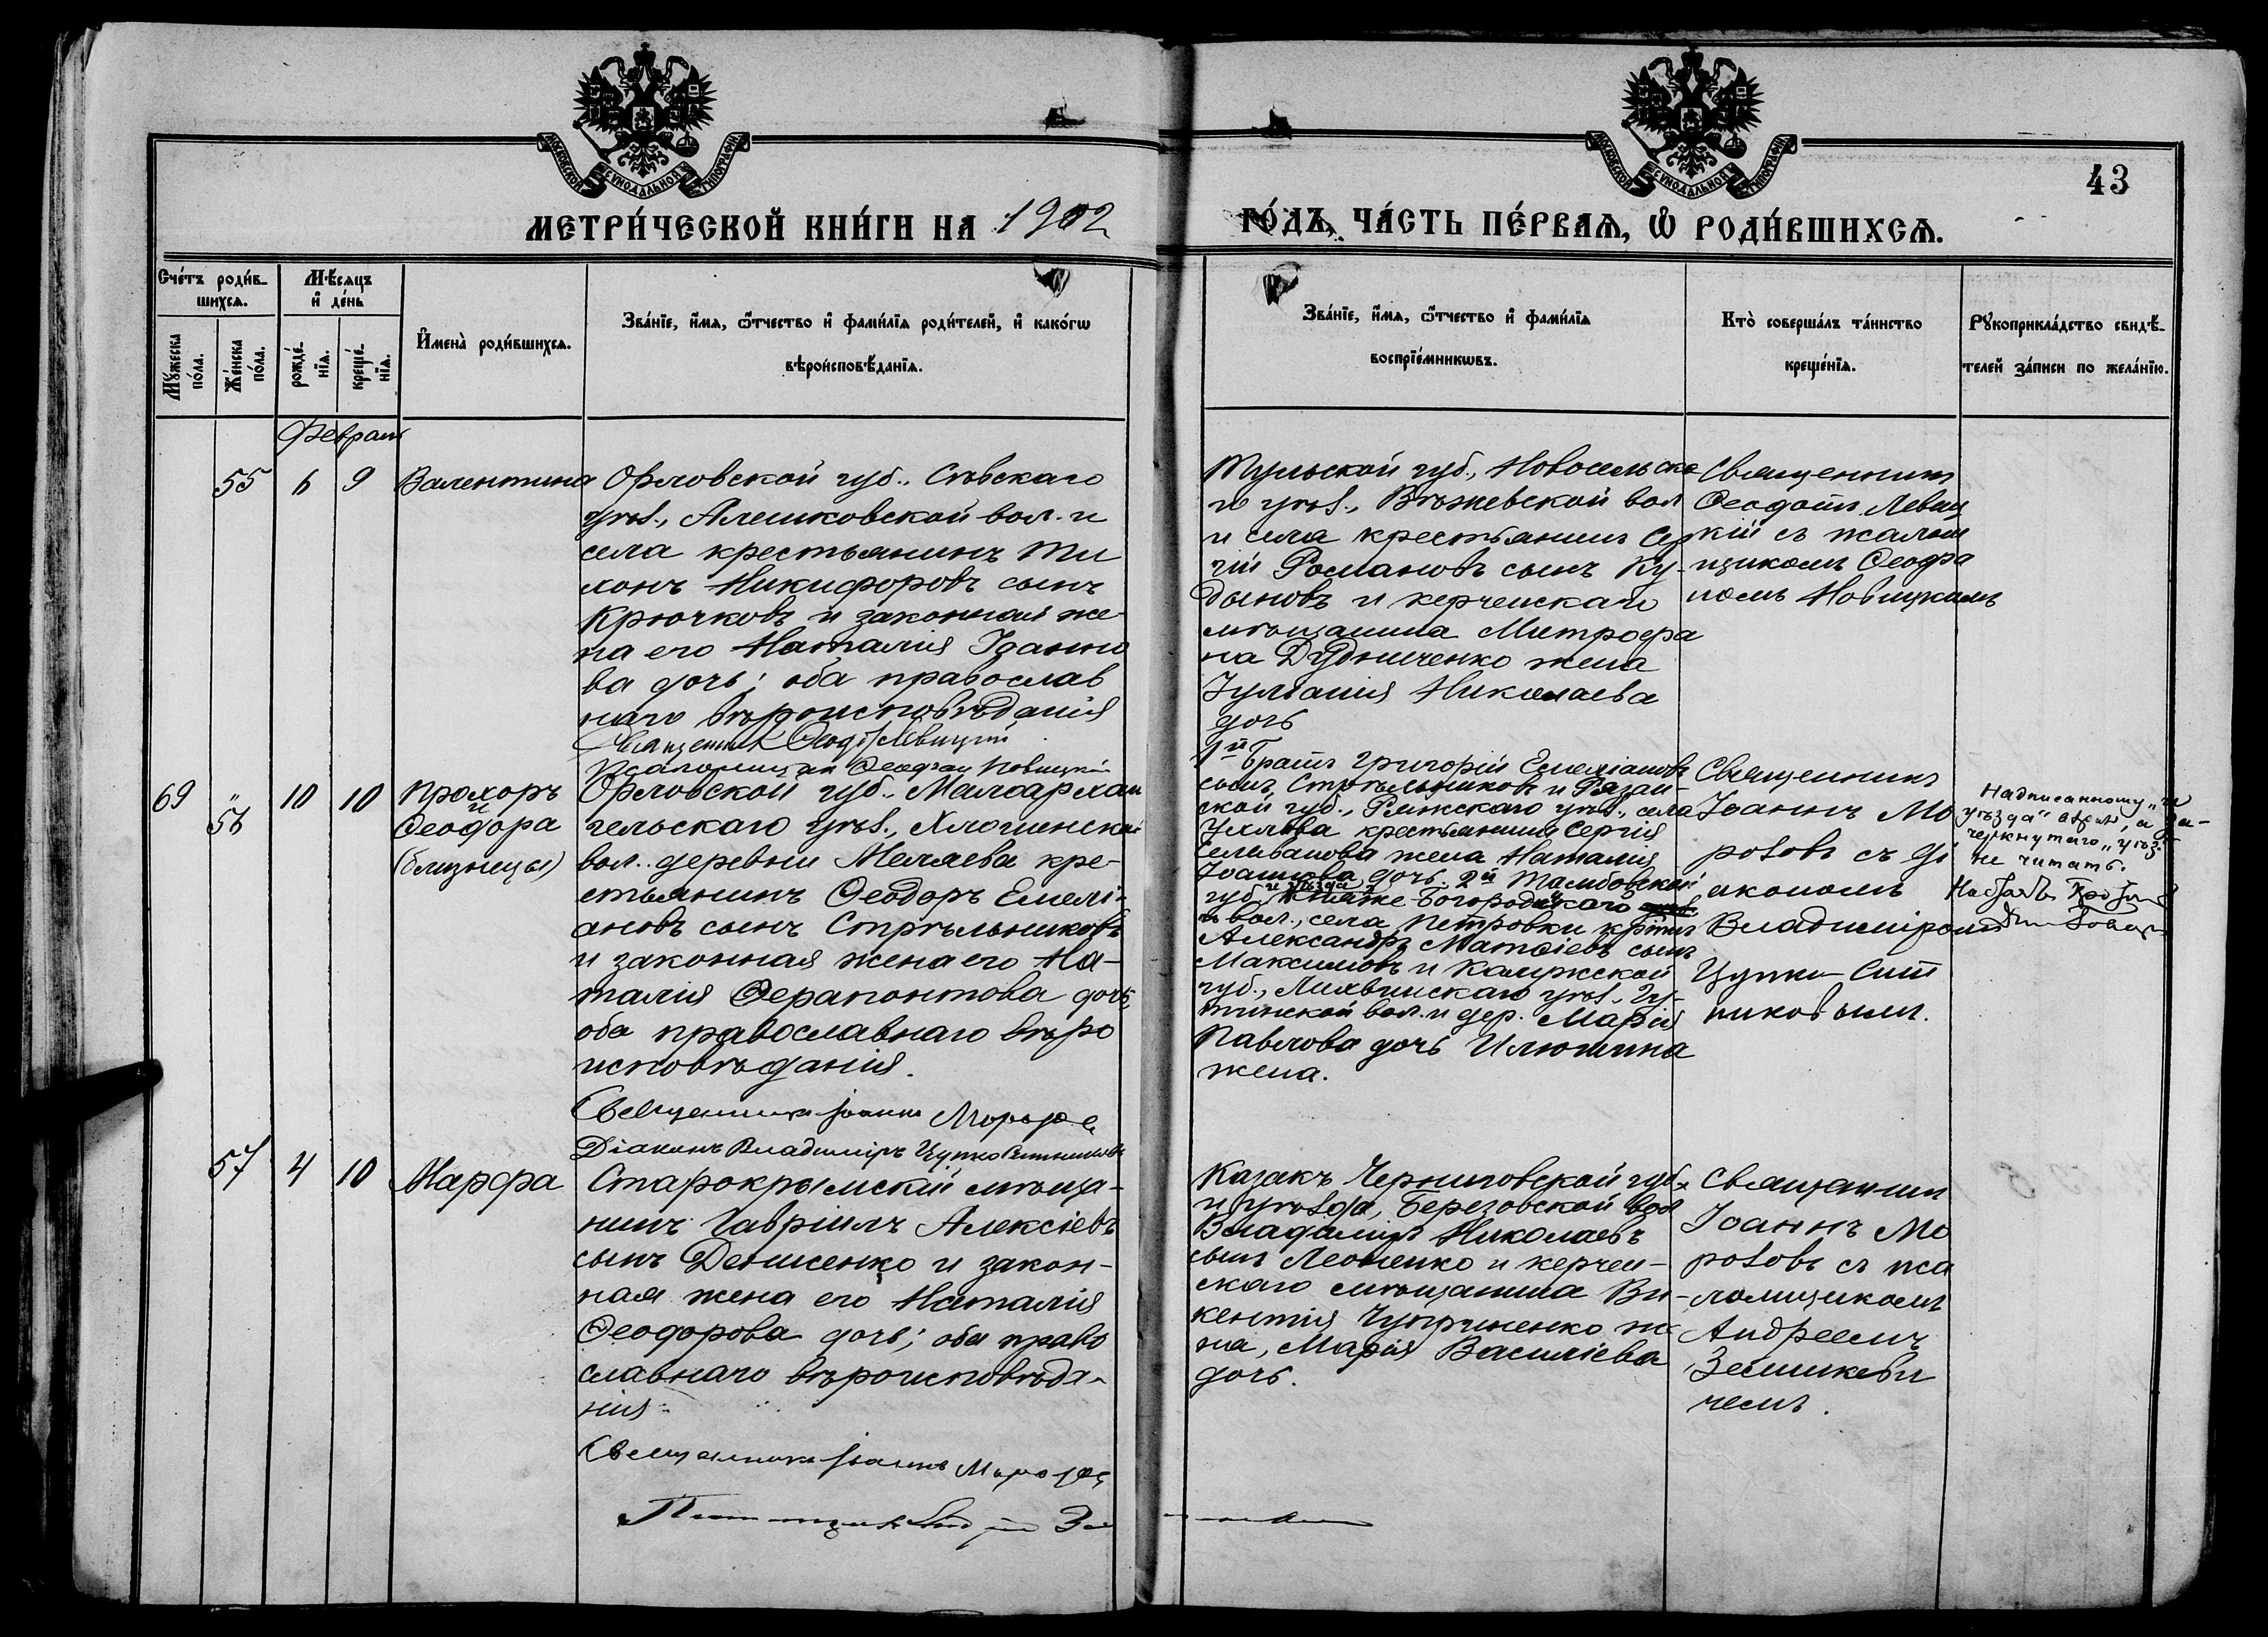 МОСКОВСКОЙ СѴНОДАЛЬНОЙ ТИПОГРАФІИ
МОСКОВСКОЙ СѴНОДАЛЬНОЙ ТИПОГРАФІИ
43
МЕТРИ́ЧЕСКОЙ КНИ́ГИ НА 1902
ГО́ДЪ, ЧА́СТЬ ПЕ́РВАѦ, Ѡ҆ РОДИ́ВШИХСѦ.
Сче́тъ роди́в-
шихсѧ.
Мꙋ́жеска по́ла.
Же́нска по́ла.
Мѣ́сѧцъ
и҆ де́нь
рожде́-
нїѧ.
креще́-
нїѧ.
И҆мена̀ роди́вшихсѧ.
Зва́нїе, и҆́мѧ, ѻ҆́тчество и҆ фами́лїѧ роди́телей, и҆ како́гѡ
вѣроисповѣ́данїѧ.
Зва́нїе, и҆́мѧ, ѻ҆́тчество и҆ фами́лїѧ
воспрїе́мникѡвъ.
Кто̀ соверша́лъ та́инство
креще́нїѧ.
Рꙋкоприкла́дство свидѣ́-
телей за́писи по жела́нїю.
Февраль
55
6
9
Валентина
Орловской губ., Сѣвскаго
уѣз., Алешковской вол. и
села крестьянинъ Ти
хонъ Никифоровъ сынъ
Крючковъ и законная же-
на его Наталія Іоанно
ва дочь; оба православ
наго вѣроисповѣданія
Священник Ѳеод. Левицкій
Псаломщик Ѳеофан Новицкій
Тульской губ., Новосельска
го уѣз., Вяжевской вол
и села крестьянинъ Сер
гій Романовъ сынъ Ку-
дыновъ и керченскаго
мѣщанина Митрофа
на Дудниченко жена
Іуліанія Николаева
дочь
Священникъ
Ѳеодотъ Левиц
кій съ псалом
щикомъ Ѳеофа
номъ Новицкимъ
69
"
56
10
10
Прохоръ
и
Ѳеодора
(близнецы)
Орловской губ. Малоархан
гельскаго уѣз., Хлоти­нской
вол. деревни Меляева кре-
стьянинъ Ѳеодоръ Емелі-
ановъ сынъ Стрѣльниковъ
и законная жена его На-
талія Ѳерапонтова дочь,
оба православнаго вѣро
исповѣданія.
Священникъ Іоаннъ Морозов
Діаконъ Владиміръ Цупко Ситниковъ
1й Братъ Григорій Емеліановъ
сынъ Стрѣльниковъ и Рязан-
ской губ., Ряжскаго уѣз., села
Ухлова крестьянина Сергія
Селиванова жена Наталія
Іоаннова дочь. 2й Тамбовской
губ. и уѣзда Княже-Богородицкаго
вол., села Петровки крест.
Александръ Матѳіевъ сынъ
Максимовъ и Калужской
губ., Лихвинскаго уѣз.
вол. и дер. Марія
Павлова дочь Илютина
жена.
Священникъ
Іоаннъ Мо
розовъ съ ді
акономъ
Владиміромъ
Цупко-Сит
никовымъ.
Надписанному „и
уѣзда" вѣрить, а за-
черкнутаго „уѣз."
не читать.
57
4
10
Марфа
Старокрымскій мѣща-
нинъ Гавріилъ Алексіевъ
сынъ Денисенко и закон-
ная жена его Наталія
Ѳеодорова дочь; оба право
славнаго вѣроисповѣда-
нія.
Священникъ Іоаннъ Морозов
Казакъ Черниговской губ.
и уѣзда, Березовской вол
Владиміръ Николаевъ
сынъ Леоненко и керчен-
скаго мѣщанина Ви-
кентія Чуприненко же
на, Марія Василіева
дочь.
Священникъ
Іоаннъ Мо
розовъ съ пса
ломщикомъ
Андреемъ
Земшкеви
чемъ.